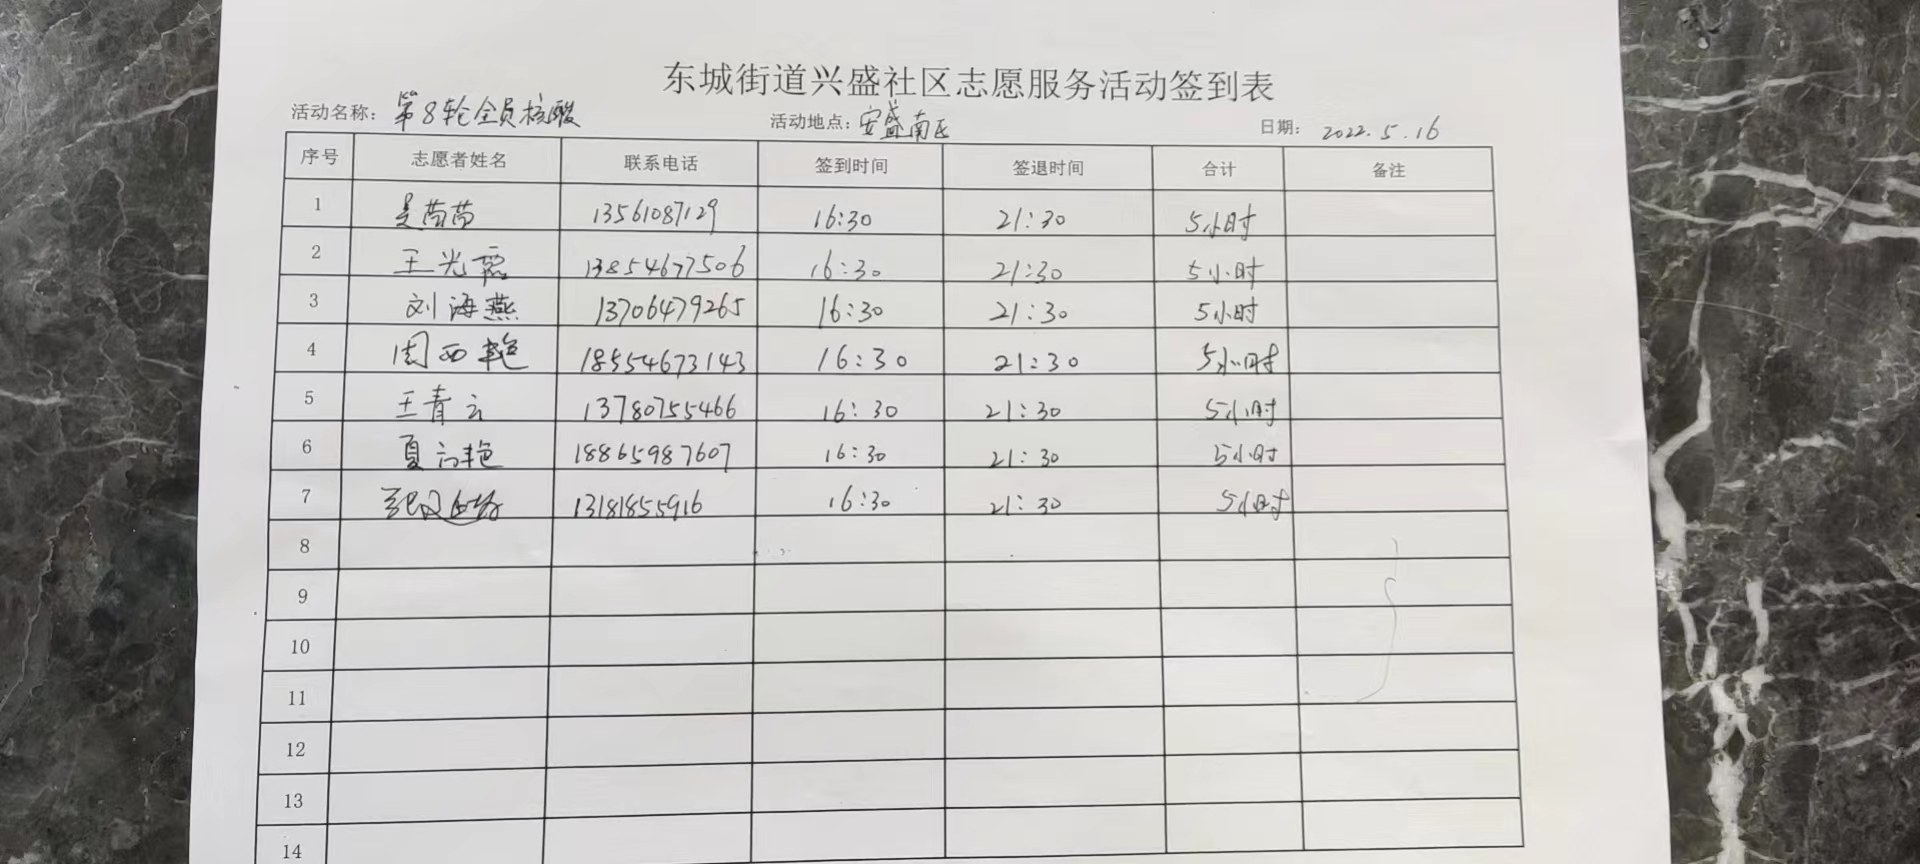 东城街道兴盛社区志愿服务活动签到表
活动名称：第8轮全员核酸 活动地点：安盛南区 日期：2022.5.16
序号 志愿者姓名 联系电话 签到时间 签退时间 合计 备注
1 苗苗 13561087129 16:30 21:30 5小时
2 王光霞 13854677506 16:30 21:30 5小时
3 刘海燕 13706479265 16:30 21:30 5小时
4 周西艳 18554673143 16:30 21:30 5小时
5 王青云 13780755466 16:30 21:30 5小时
6 夏艳 18865987607 16:30 21:30 5小时
7 13181855916 16:30 21:30 5小时
8
9
10
11
12
13
14